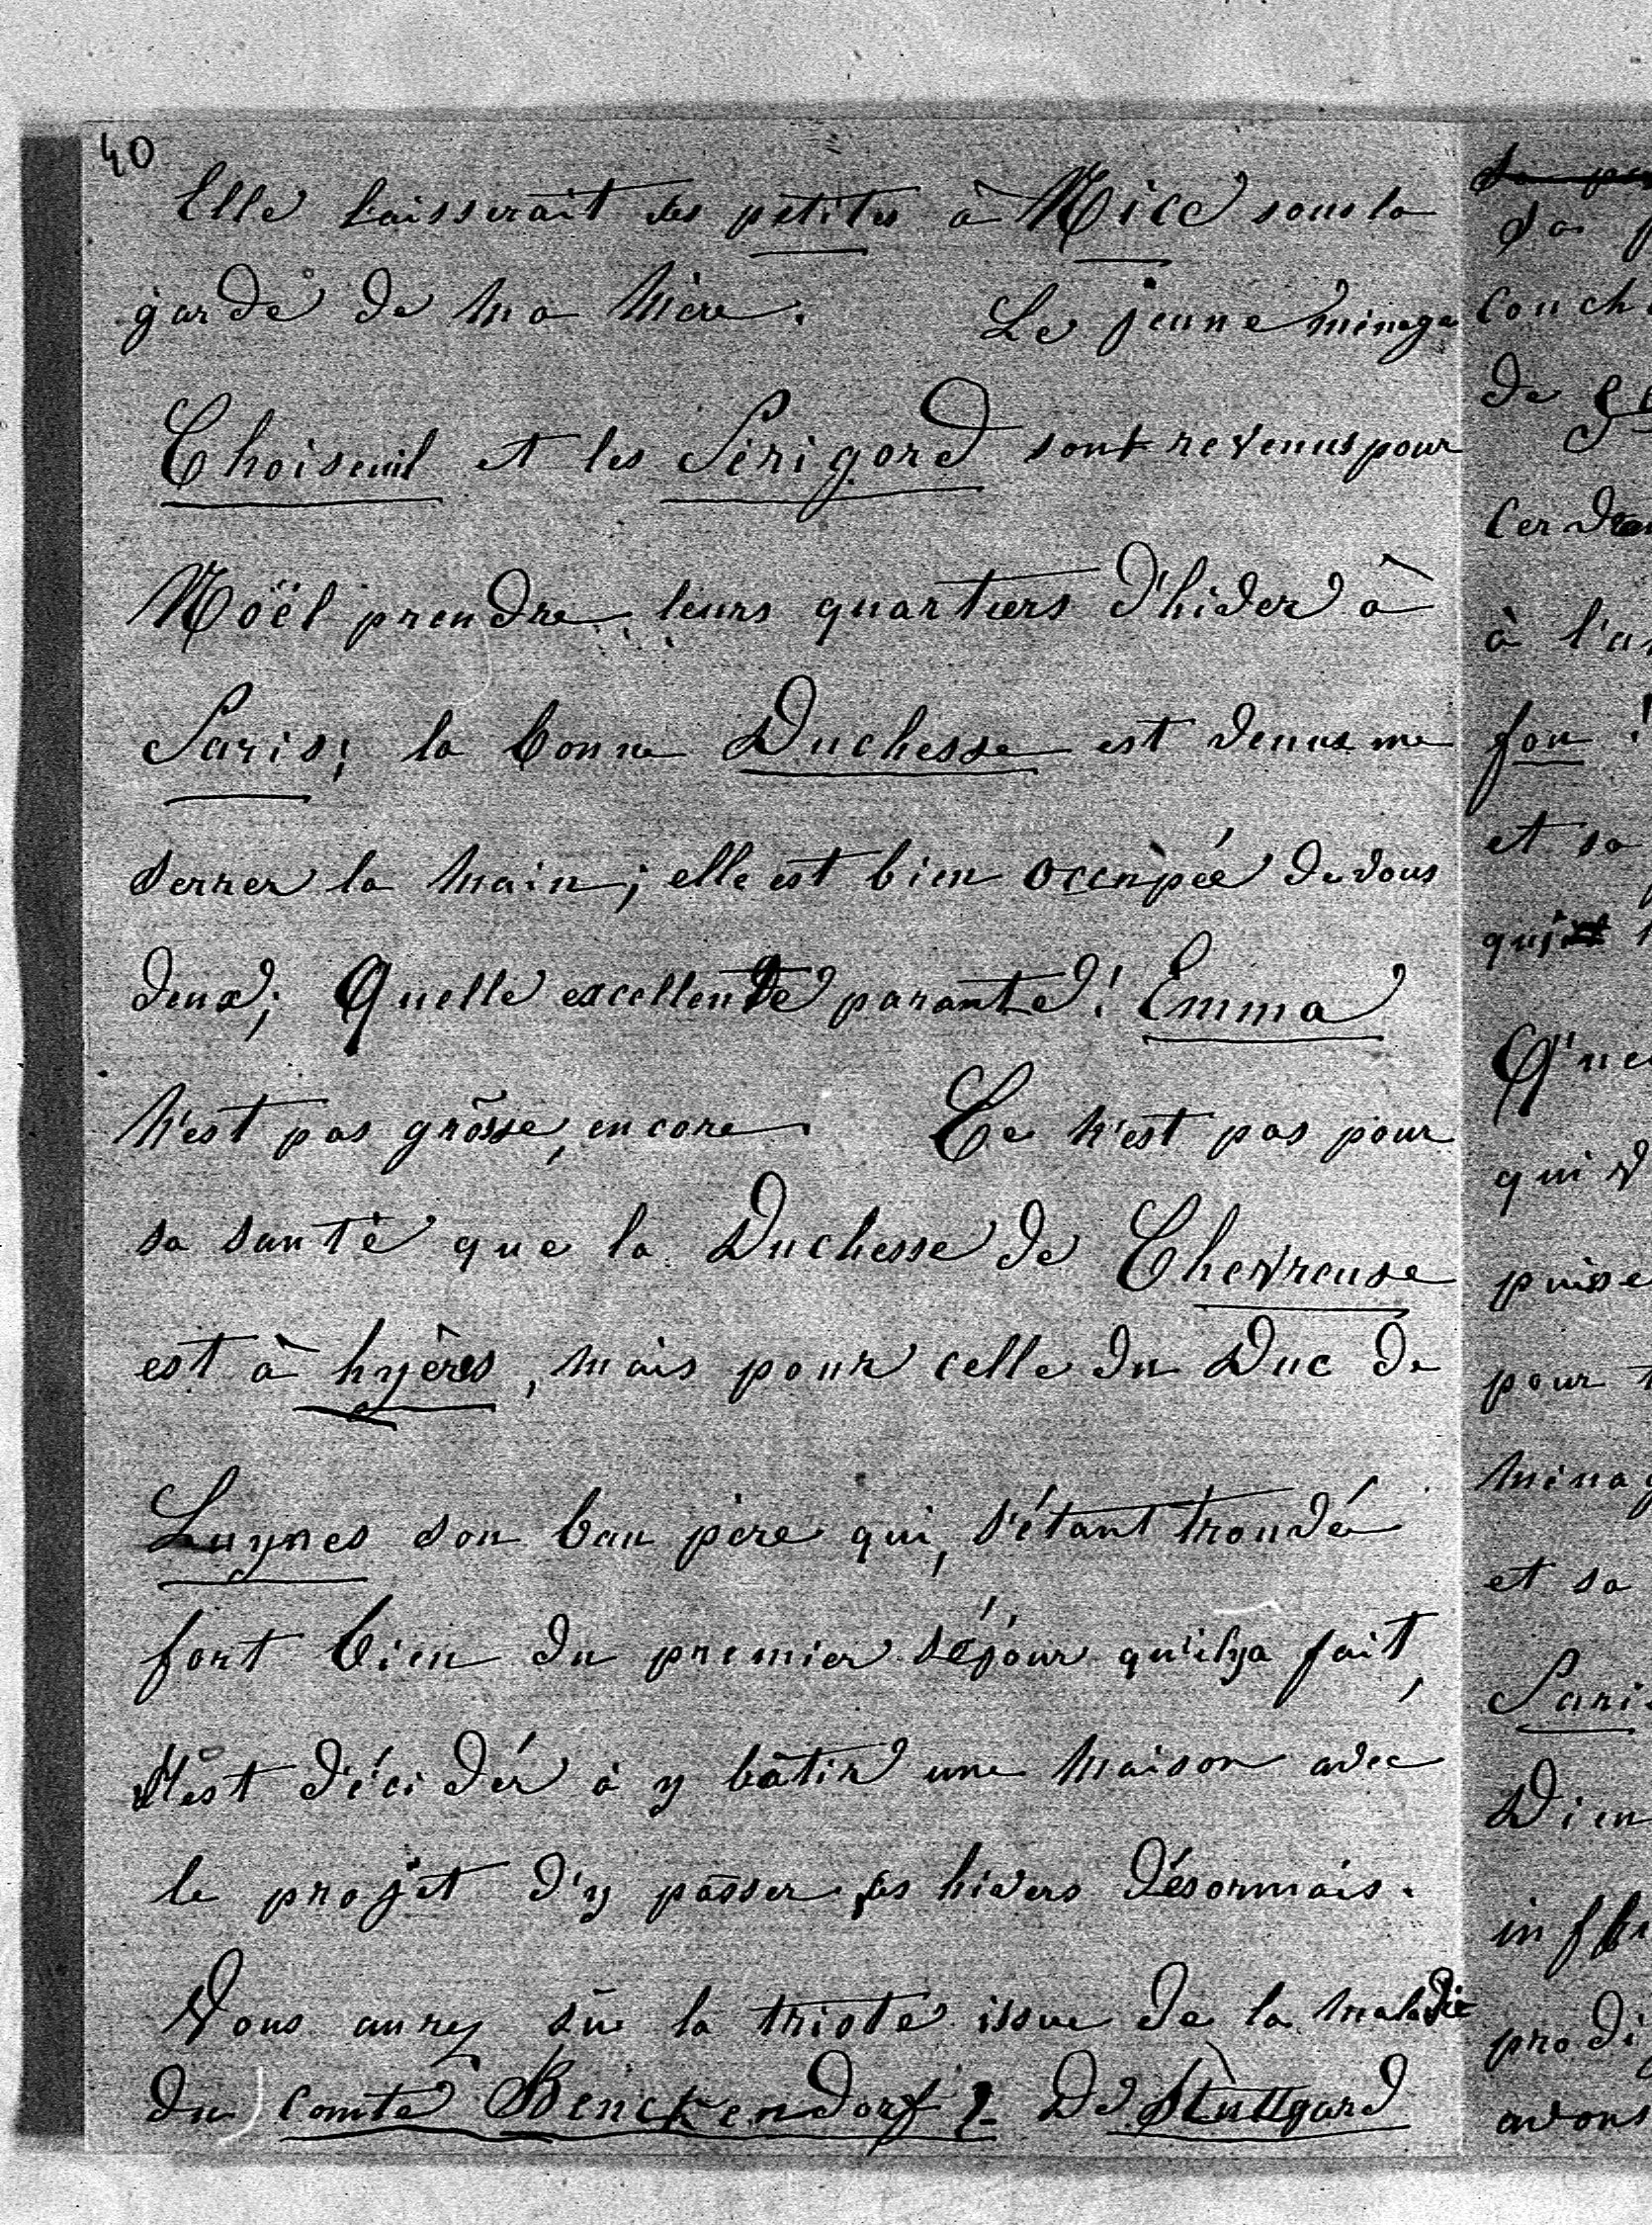 40
Elle laisserait ses petites à Nice sous la
garde de ma mère. Le jeune ménage
Choiseuil et les Périgord sont revenus pour
Noël prendre leurs quartiers d'hiver à
Paris; la bonne Duchesse est venue me
serrer la main; elle est bien occupée de vous
deux; Quelle excellente parante! Emma
n'est pas grosse, encore. Ce n'est pas pour
sa santé que la Duchesse de Chevreuse
est à hyères, mais pour celle du Duc de
Luynes son bau père qui, s'étant trouvé
fort bien du premier séjour qu'il y a fait,
s'est décidér à y bâtir une maison avec
le projet d'y passer ses hivers désormais.
Vous aurez sû la triste issue de la maladie
du comte Benckendorf 2 De Stuttgard
Sa
couch
de
à l'a
fou !
et sa
qui
Qu'ne
qui v
puisse
pour
ménag
et sa
Pari
Dieu
prodi
avons